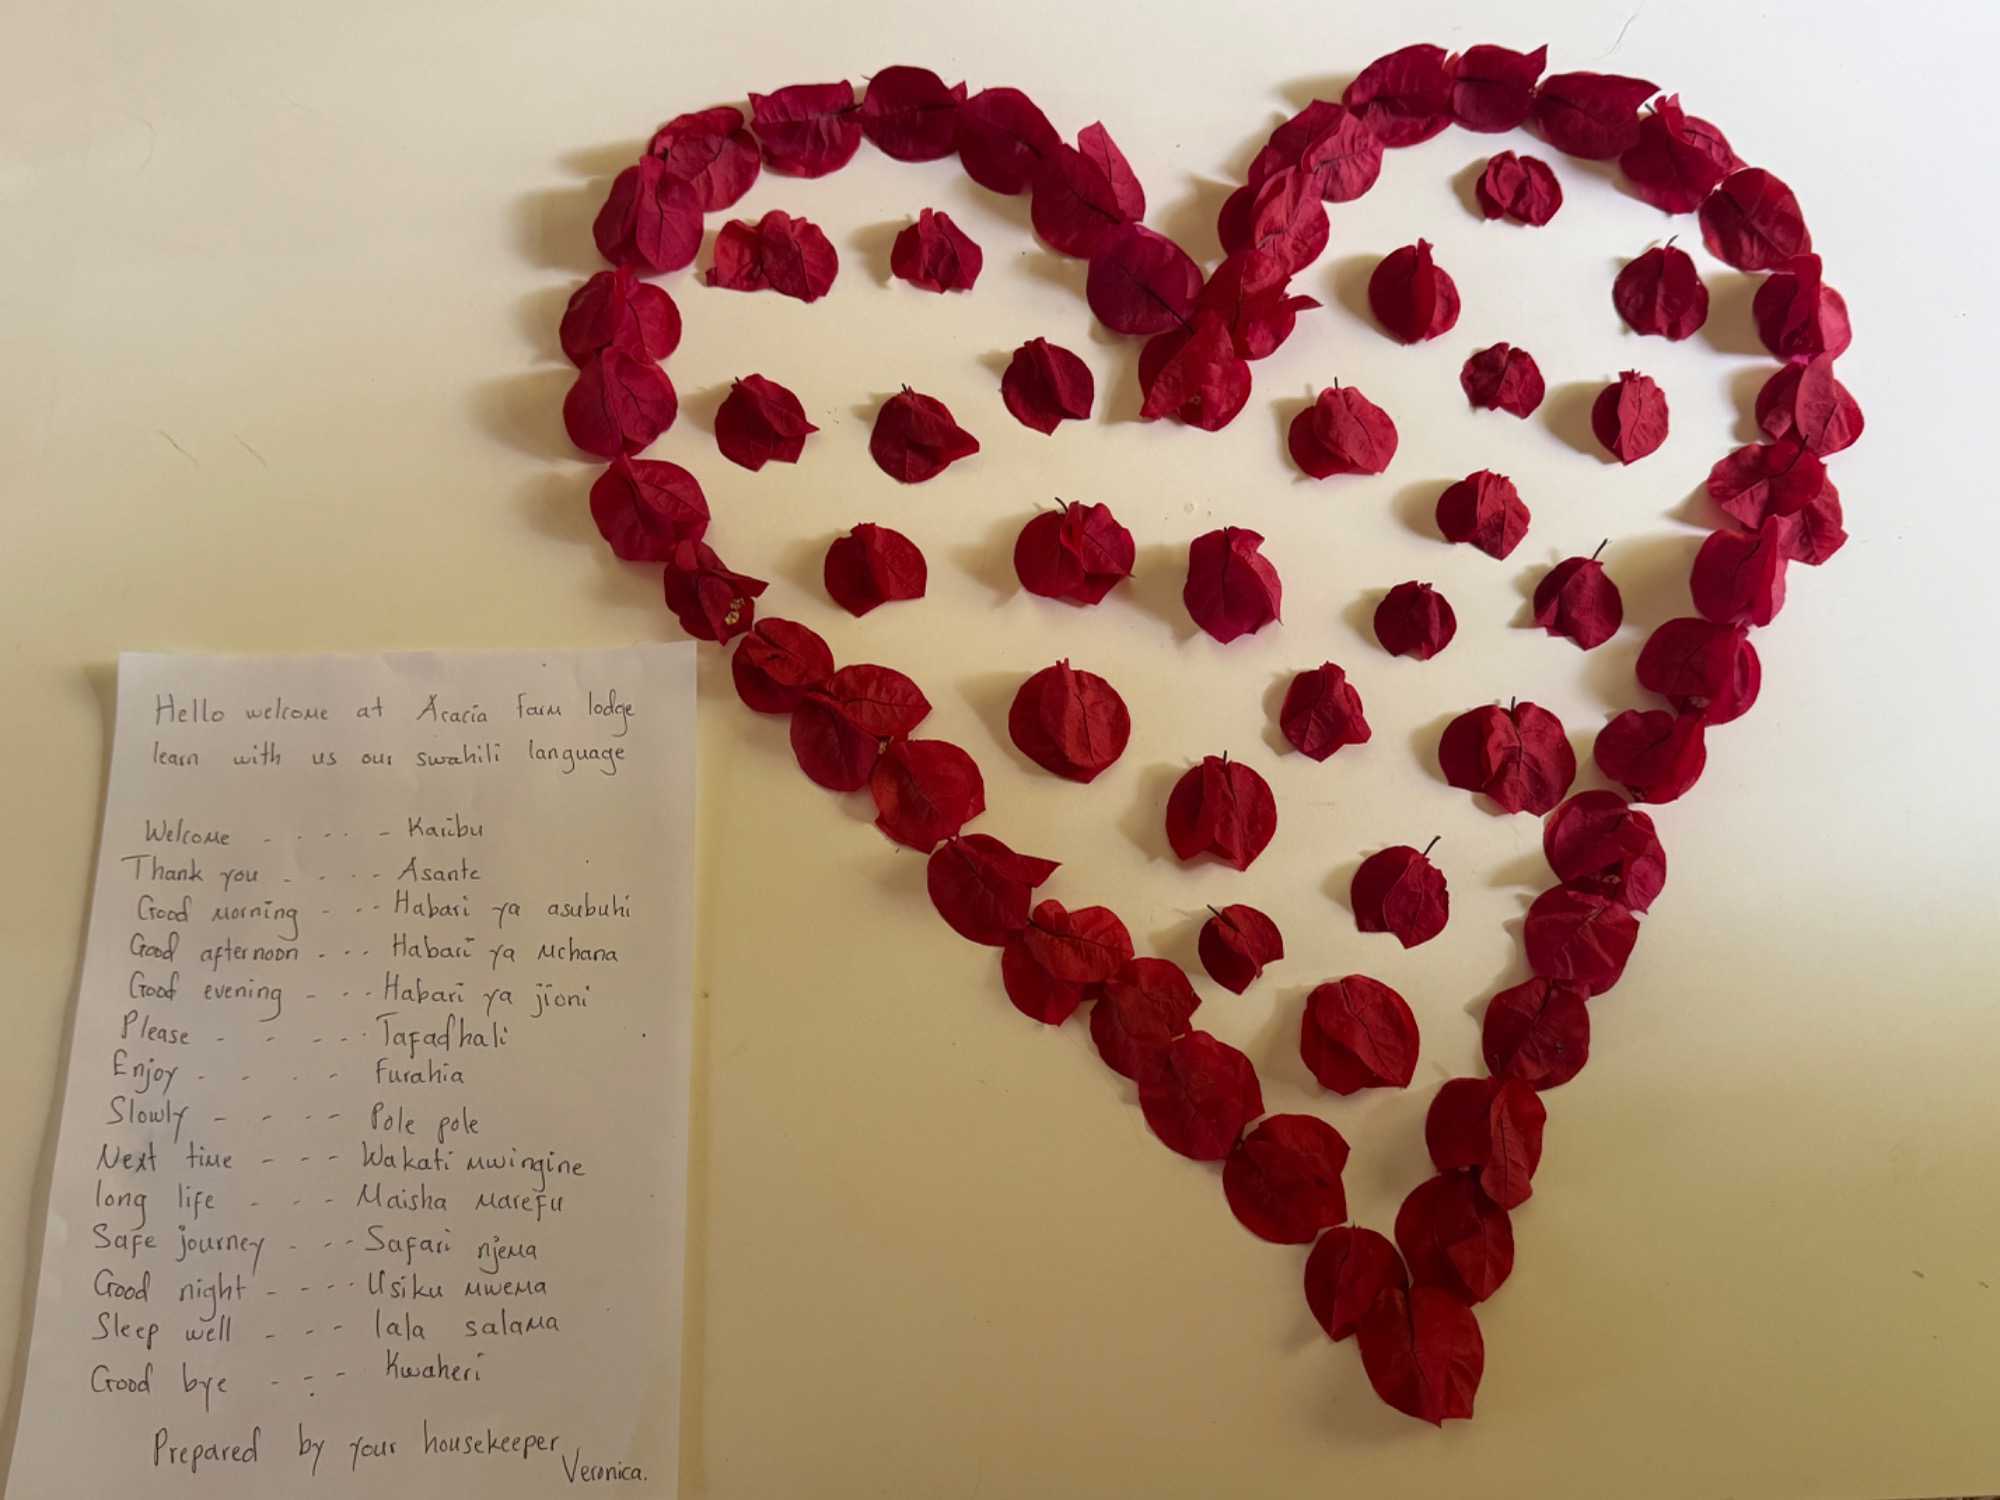 Hello welcome at Acacia Farm lodge
learn with us our swahili language
Welcome - - - - - Karibu
Thank you - - - - Asante
Good morning - - - Habari ya asubuhi
Good afternoon - - - Habari ya mchana
Good evening - - - Habari ya jioni
Please - - - - - Tafadhali
Enjoy - - - - Furahia
Slowly - - - - Pole pole
Next time - - - Wakati mwingine
long life - - - Maisha marefu
Safe journey - - - Safari njema
Good night - - - - Usiku mwema
Sleep well - - - lala salama
Good bye - - - Kwaheri
Prepared by your housekeeper
Veronica.